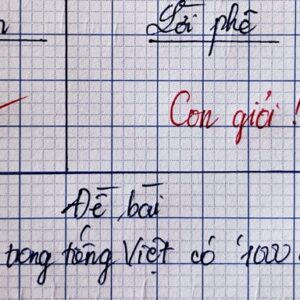 Lời phê
Con giỏi!
Đề bài
trong tiếng Việt có 1000